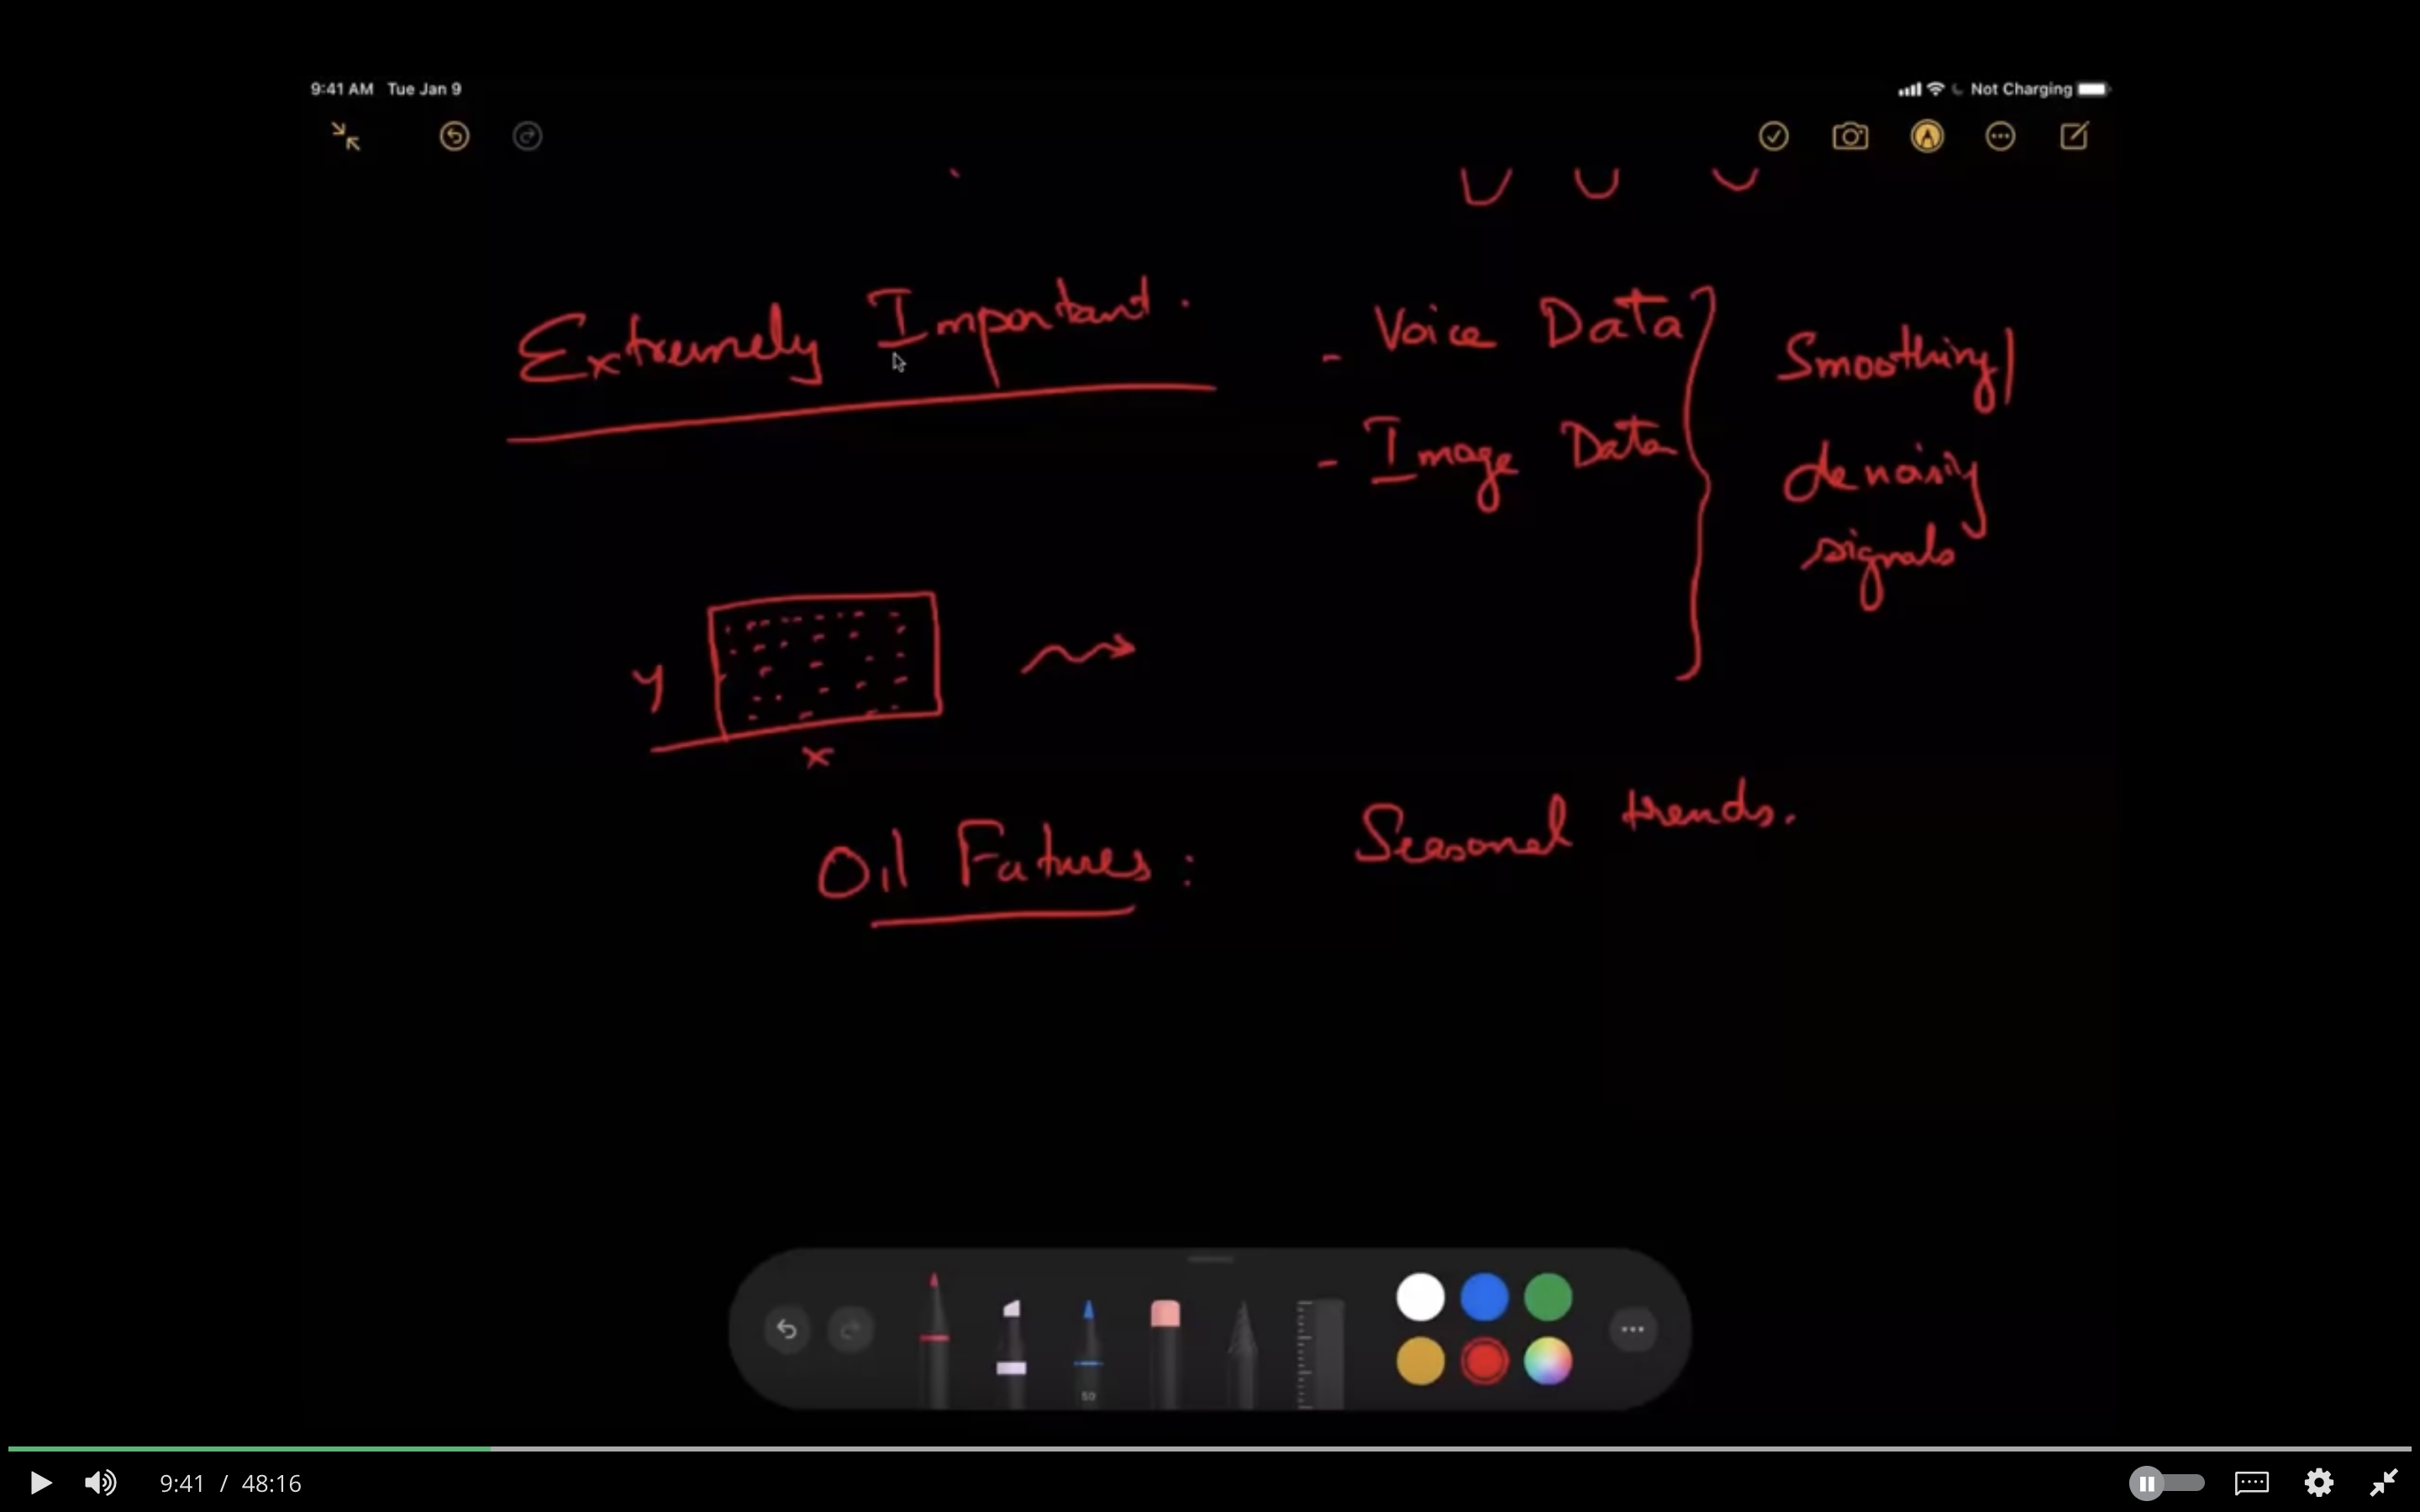 9:41 AM Tue Jan 9
Not Charging
Extremely Important.
- Voice Data
- Image Data
Smoothing/
denoising
signals
y
x
Oil Futures:
Seasonal trends.
50
9:41 / 48:16